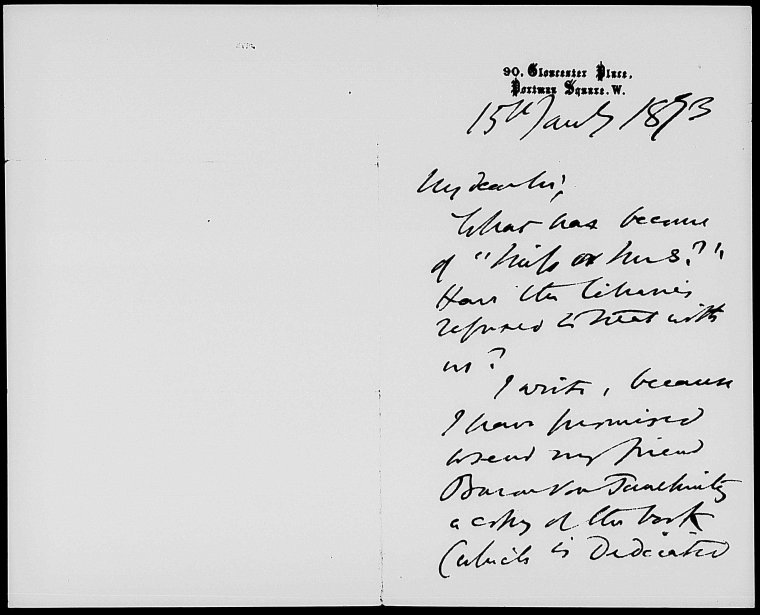 90, Gloucester Place,
Portman Square. W.
15th Jany 1873
My dear Sir,
What has become
of "Miss or Mrs?".
Have the libraries
refused to treat with
us?
I write, because
I have promised
to send my friend
Baron Von Tauchnitz
a copy of the book
(which is dedicated